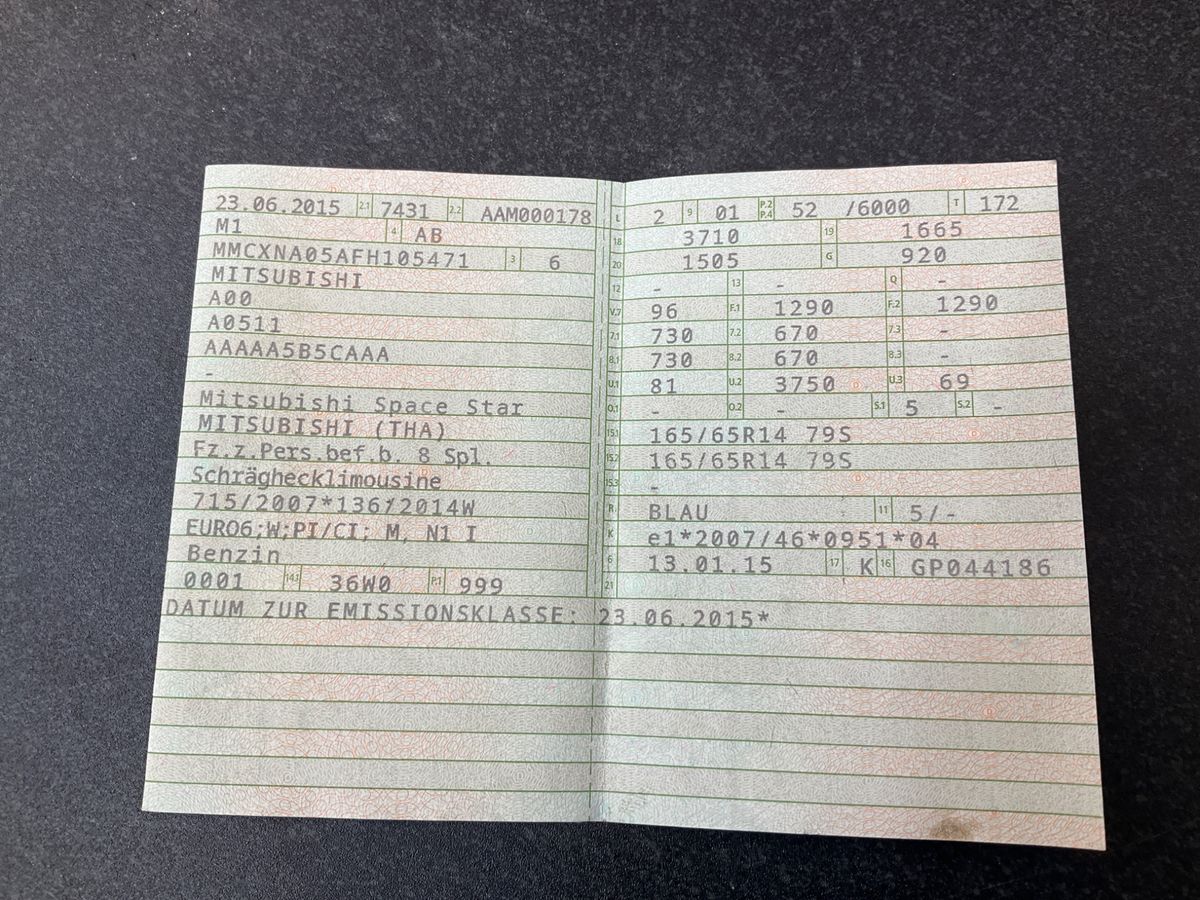 23.06.2015 2.1 7431 2.2 AAM000178
M1 4 AB
MMCXNA05AFH105471 3 6
MITSUBISHI
A00
A0511
AAAAA5B5CAAA
-
Mitsubishi Space Star
MITSUBISHI (THA)
Fz.z.Pers.bef.b. 8 Spl.
Schräghecklimousine
715/2007*136/2014W
EURO6;W;PI/CI; M, N1 I
Benzin
0001 14.1 36W0 P.1 999
L 2 9 01 P.2 P.4 52 /6000 T 172
18 3710 19 1665
20 1505 G 920
12 - 13 - Q -
V.7 96 F.1 1290 F.2 1290
7.1 730 7.2 670 7.3 -
8.1 730 8.2 670 8.3 -
U.1 81 U.2 3750 U.3 69
O.1 - O.2 - S.1 5 S.2 -
15.1 165/65R14 79S
15.2 165/65R14 79S
15.3 -
R BLAU 11 5/-
K e1*2007/46*0951*04
6 13.01.15 17 K 16 GP044186
21
DATUM ZUR EMISSIONSKLASSE: 23.06.2015*